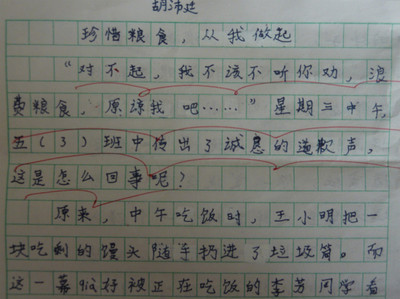 胡沛廷
珍惜粮食，从我做起
“对不起，我不该不听你劝，浪
费粮食，原谅我吧……”星期三中午，
五（3）班中传出了诚恳的道歉声，
这是怎么回事呢？
原来，中午吃饭时，王小明把一
块吃剩的馒头随手扔进了垃圾筒。而
这一幕qià好被正在吃饭的李芳同学看